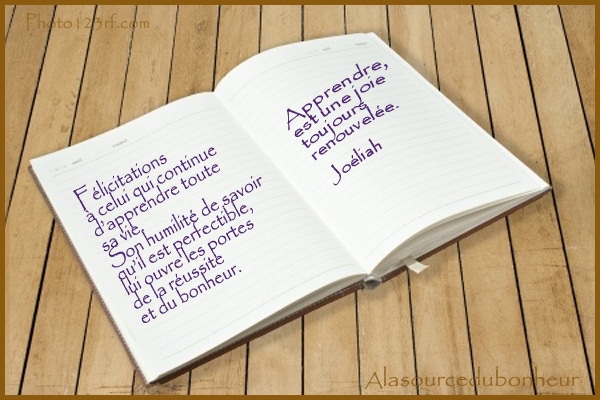 Photo123rf.com
Félicitations
à celui qui continue
d'apprendre toute
sa vie.
Son humilité de savoir
qu'il est perfectible,
lui ouvre les portes
de la réussité
et du bonheur.
Apprendre,
est une joie
toujours
renouvelée.
Joéliah
Alasourcedubonheur